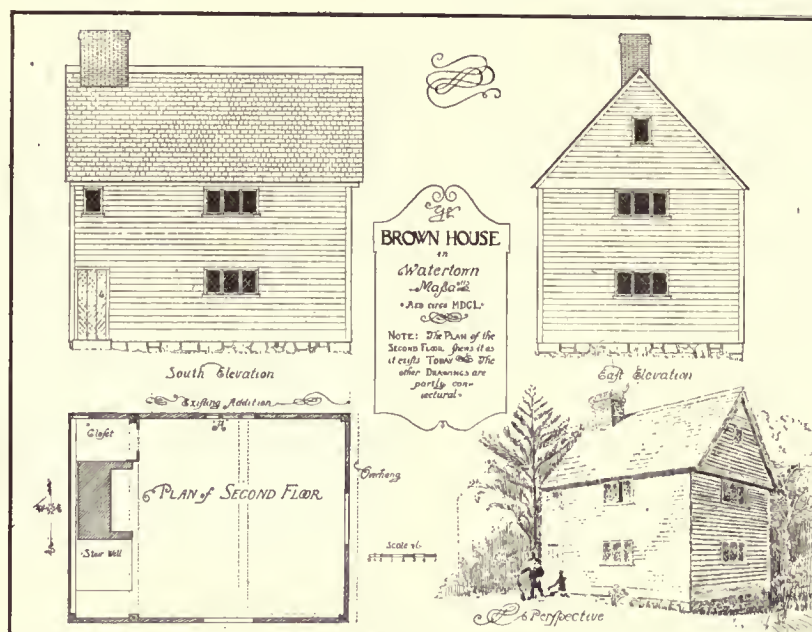 South Elevation
Ye
BROWN HOUSE
in
Watertown
Maſſa
• A&D circa MDCL •
NOTE: The PLAN of the
SECOND FLOOR ſhews it as
it exiſts TODAY The
other DRAWINGS are
partly con-
jectural •
East Elevation
Exiſting Addition
Closet
PLAN of SECOND FLOOR
Overhang
Stair Well
Scale of
A Perſpective